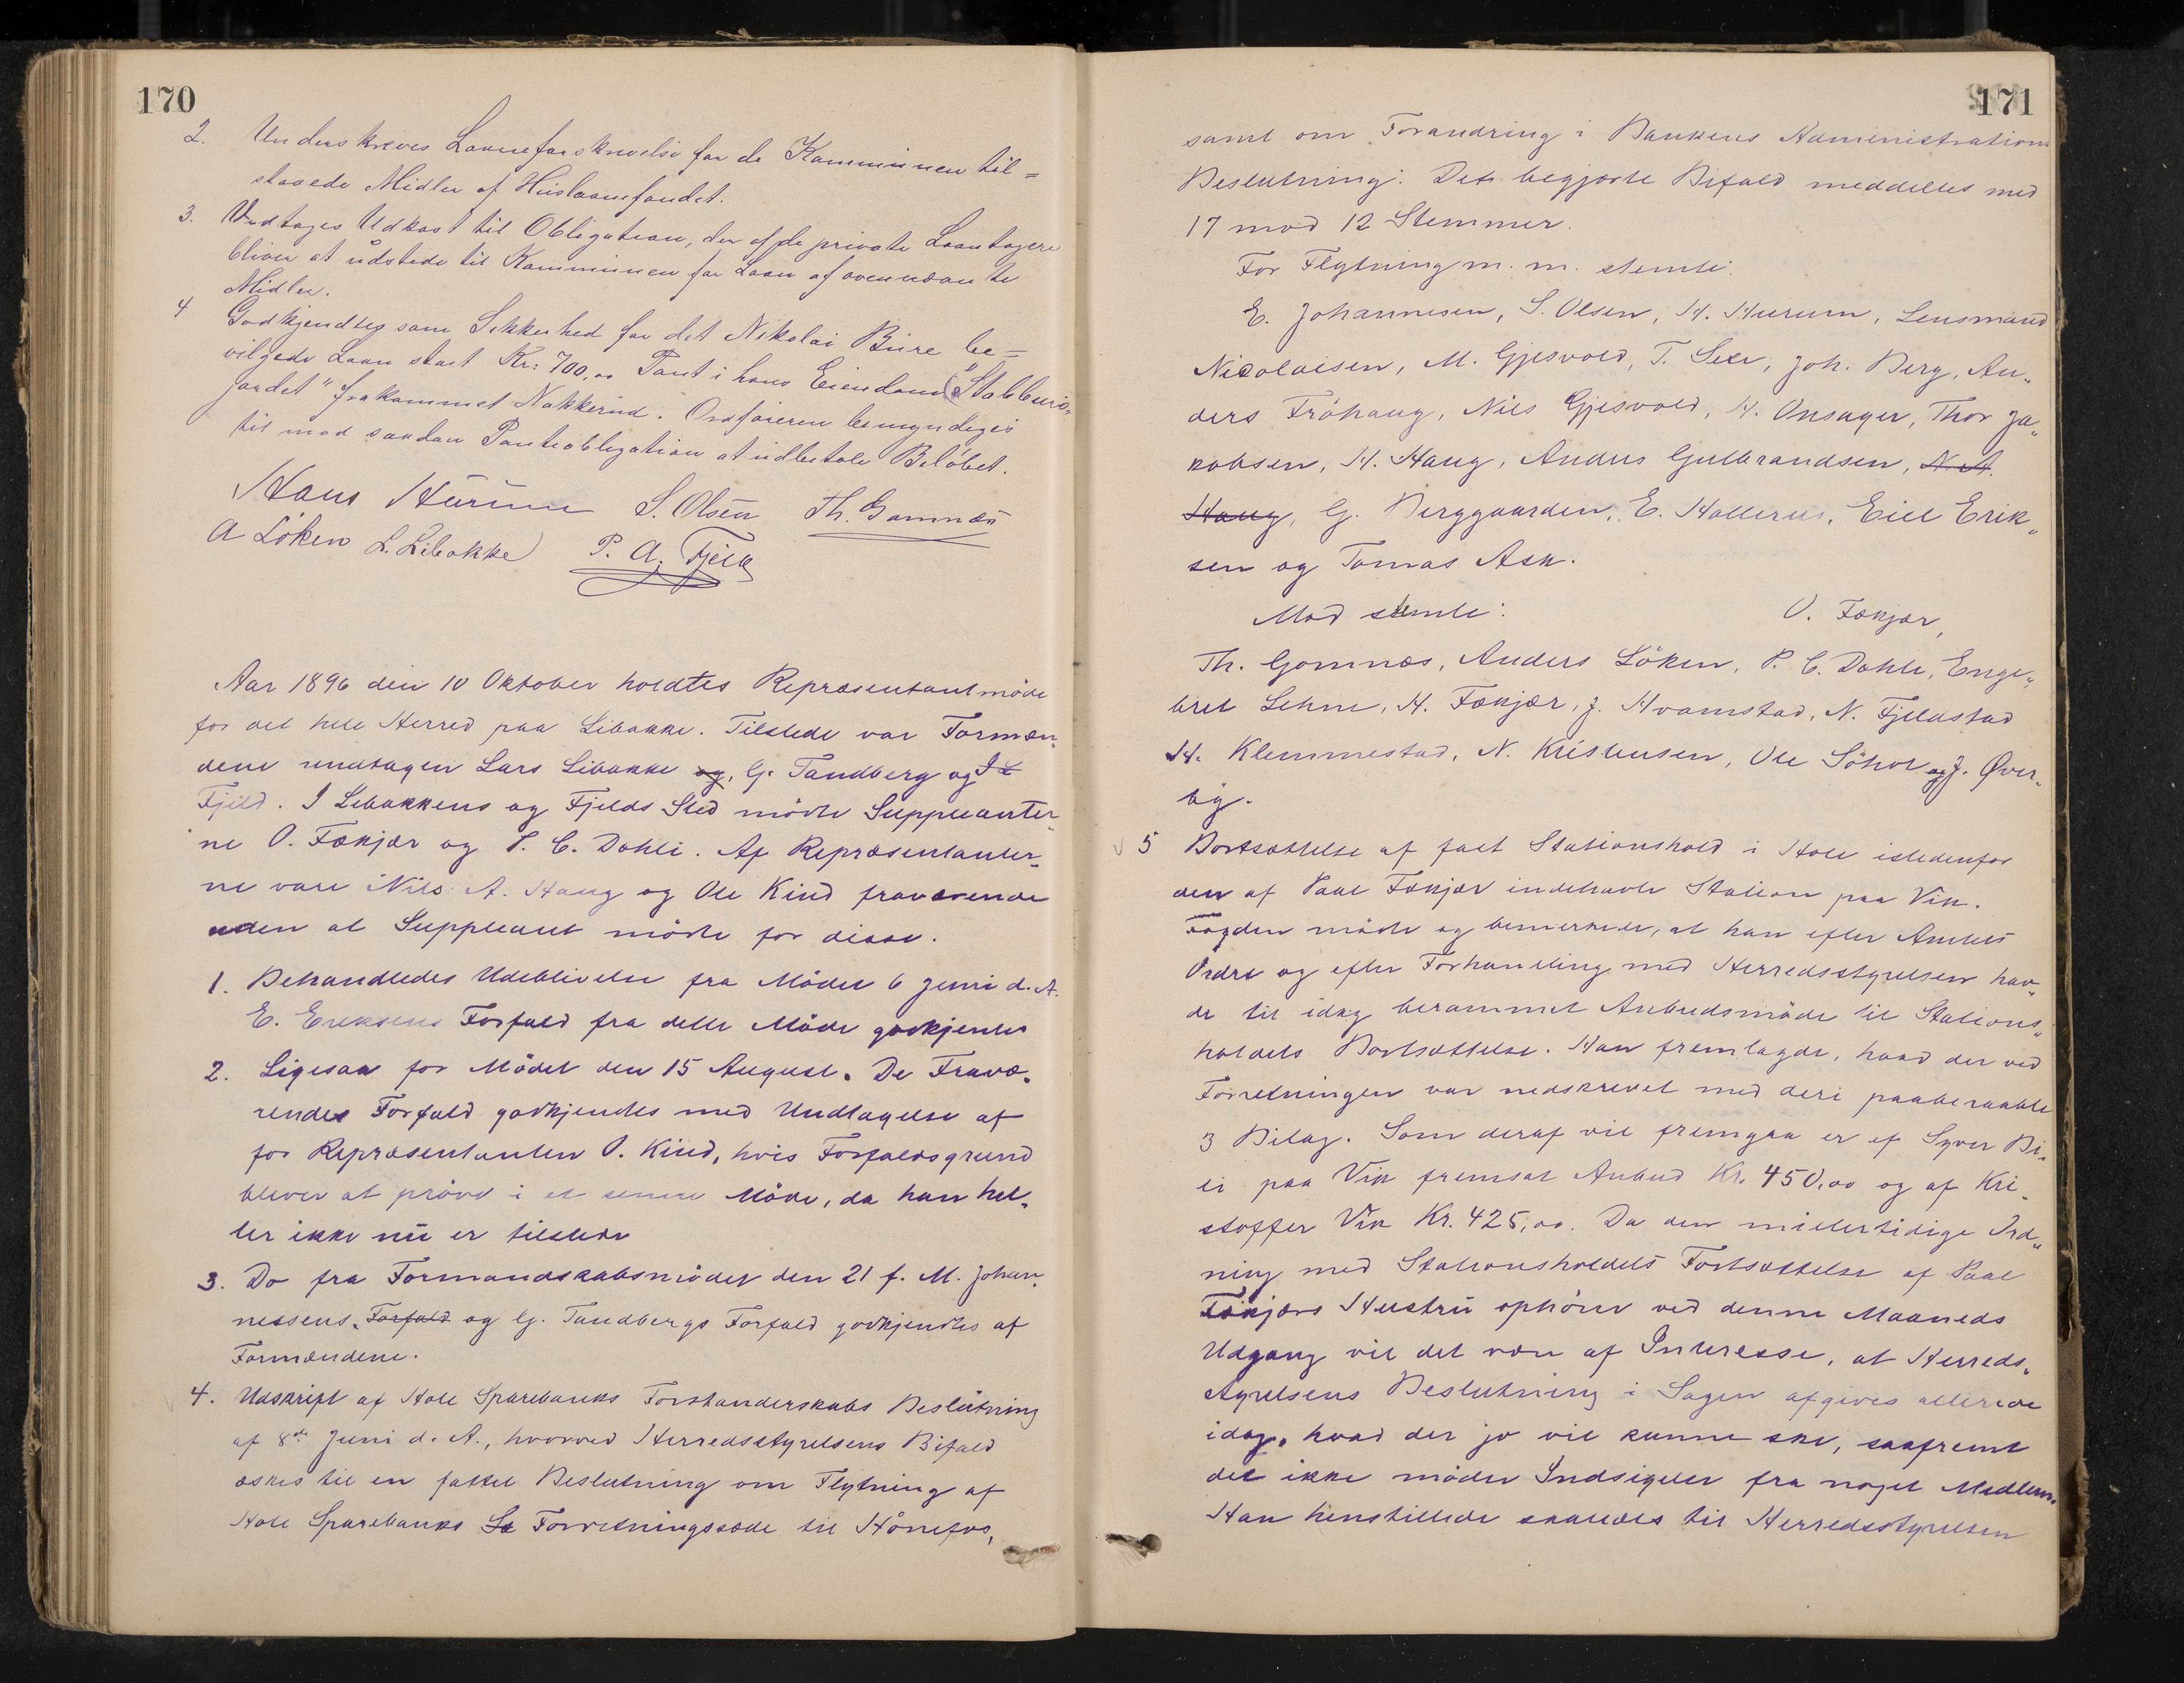 170
2. Underskreves Laaneforskrivelse for de Kommunen til=
staaede Midler af Huslaanefondet.
3. Vedtoges Udkast til Obligation, der af de private Laantagere
bliver at udstede til Kommunen for Laan af ovennævnte
Midler.
4 Godkjendtes som Sikkerhed for det Nikolai Bure be=
vilgede Laan stort Kr: 700,00 Pant i hans Eiendom "Stabburs=
jordet" frakommet Nakkerud. Ordføreren bemyndiges
til mod saadan Panteobligation at udbetale Beløbet.
Hans Hurum S. Olsen Th. Gomnæs
A Løken L. Libakke P. A. Fjeld
Aar 1896 den 10 Oktober holdtes Repræsentantmöde
for det hele Herred paa Libakke. Tilstede var Formæn„
dene undtagen Lars Libakke og, G. Tandberg og
Fjeld. I Libakkens og Fjelds Sted mödte Suppleanter„
ne O. Fækjær og P. C. Dahli. Af Repræsentanter„
ne vare Nils A. Haug og Ole Kind fraværende
uden at Suppleant mödte for disse.
1. Behandledes Udeblivelse fra Mödet 6 Juni d. A.
E. Eriksens Forfald fra dette Möde godkjentes
2. Ligesaa for Mödet den 15 August. De Fravæ„
rendes Forfald godkjendtes med Undtagelse af
for Repræsentanten O. Kind, hvis Forfaldsgrund
bliver at pröve i et senere Möde, da han hel„
ler ikke nu er tilstede
3. Do fra Formandskabsmödet den 21 f. M. Johan„
nessens Forfald og G. Tandbergs Forfald godkjendtes af
Formændene.
4. Udskrift af Hole Sparebanks Forstanderskabs Beslutning
af 8de Juni d. A., hvorved Herredsstyrelsens Bifald
æskes til en fattet Beslutning om Flytning af
Hole Sparebanks Forretningssæde til Hönefos,
171
samt om Forandring i Bankens Administration.
Beslutning: Det begjærte Bifald meddeltes med
17 mod 12 Stemmer.
For Flytning m. m. stemte:
E. Johannesen, S. Olsen, H. Hurum, Lensmand
Nicolaisen, M. Gjesvold, T. Sexe, Joh. Berg, An„
ders Fröhaug, Nils Gjesvold, H. Onsager, Thor Ja„
kobsen, H. Haug, Anders Gulbrandsen, N. A.
Haug, G. Berggaarden, E. Hallerud, Eill Erik„
sen og Tomas Ask.
Mod stemte: O. Fækjær,
Th. Gomnæs, Anders Löken, P. C. Dahli, Enge„
bret Lehne, H. Fækjær, J. Hvamstad, N. Fjeldstad
H. Klemmestad, N. Kristensen, Ole Söhol og J. Øver„
by.
5 Bortsættelse af fast Stationshold i Hole istedenfor
den af Paal Fækjær indehavte Station paa Vik.
Fogden mödte og bemerkede, at han efter Amtets
Ordre og efter Forhandling med Herredsstyrelsen hav„
de til idag berammet Anbudsmöde til Stations„
holdets Bortsættelse. Han fremlagde, hvad der ved
Forretningen var nedskrevet med deri paaberaabte
3 Bilag. Som deraf vil fremgaa er af Syver Bi„
li paa Vik fremsat Anbud Kr. 450,00 og af Kri„
stoffer Vik Kr. 425,00. Da den midlertidige Ord„
ning med Stationsholdets Fortsættelse af Paal
Fækjærs Hustru ophörer ved denne Maaneds
Udgang vil det være af Interesse, at Herreds„
styrelsens Beslutning i Sagen afgives allerede
idag, hvad der jo vil kunne ske, saafremt
det ikke möder Indsigelse fra noget Medlem.
Han henstillede saaledes til Herredsstyrelsen